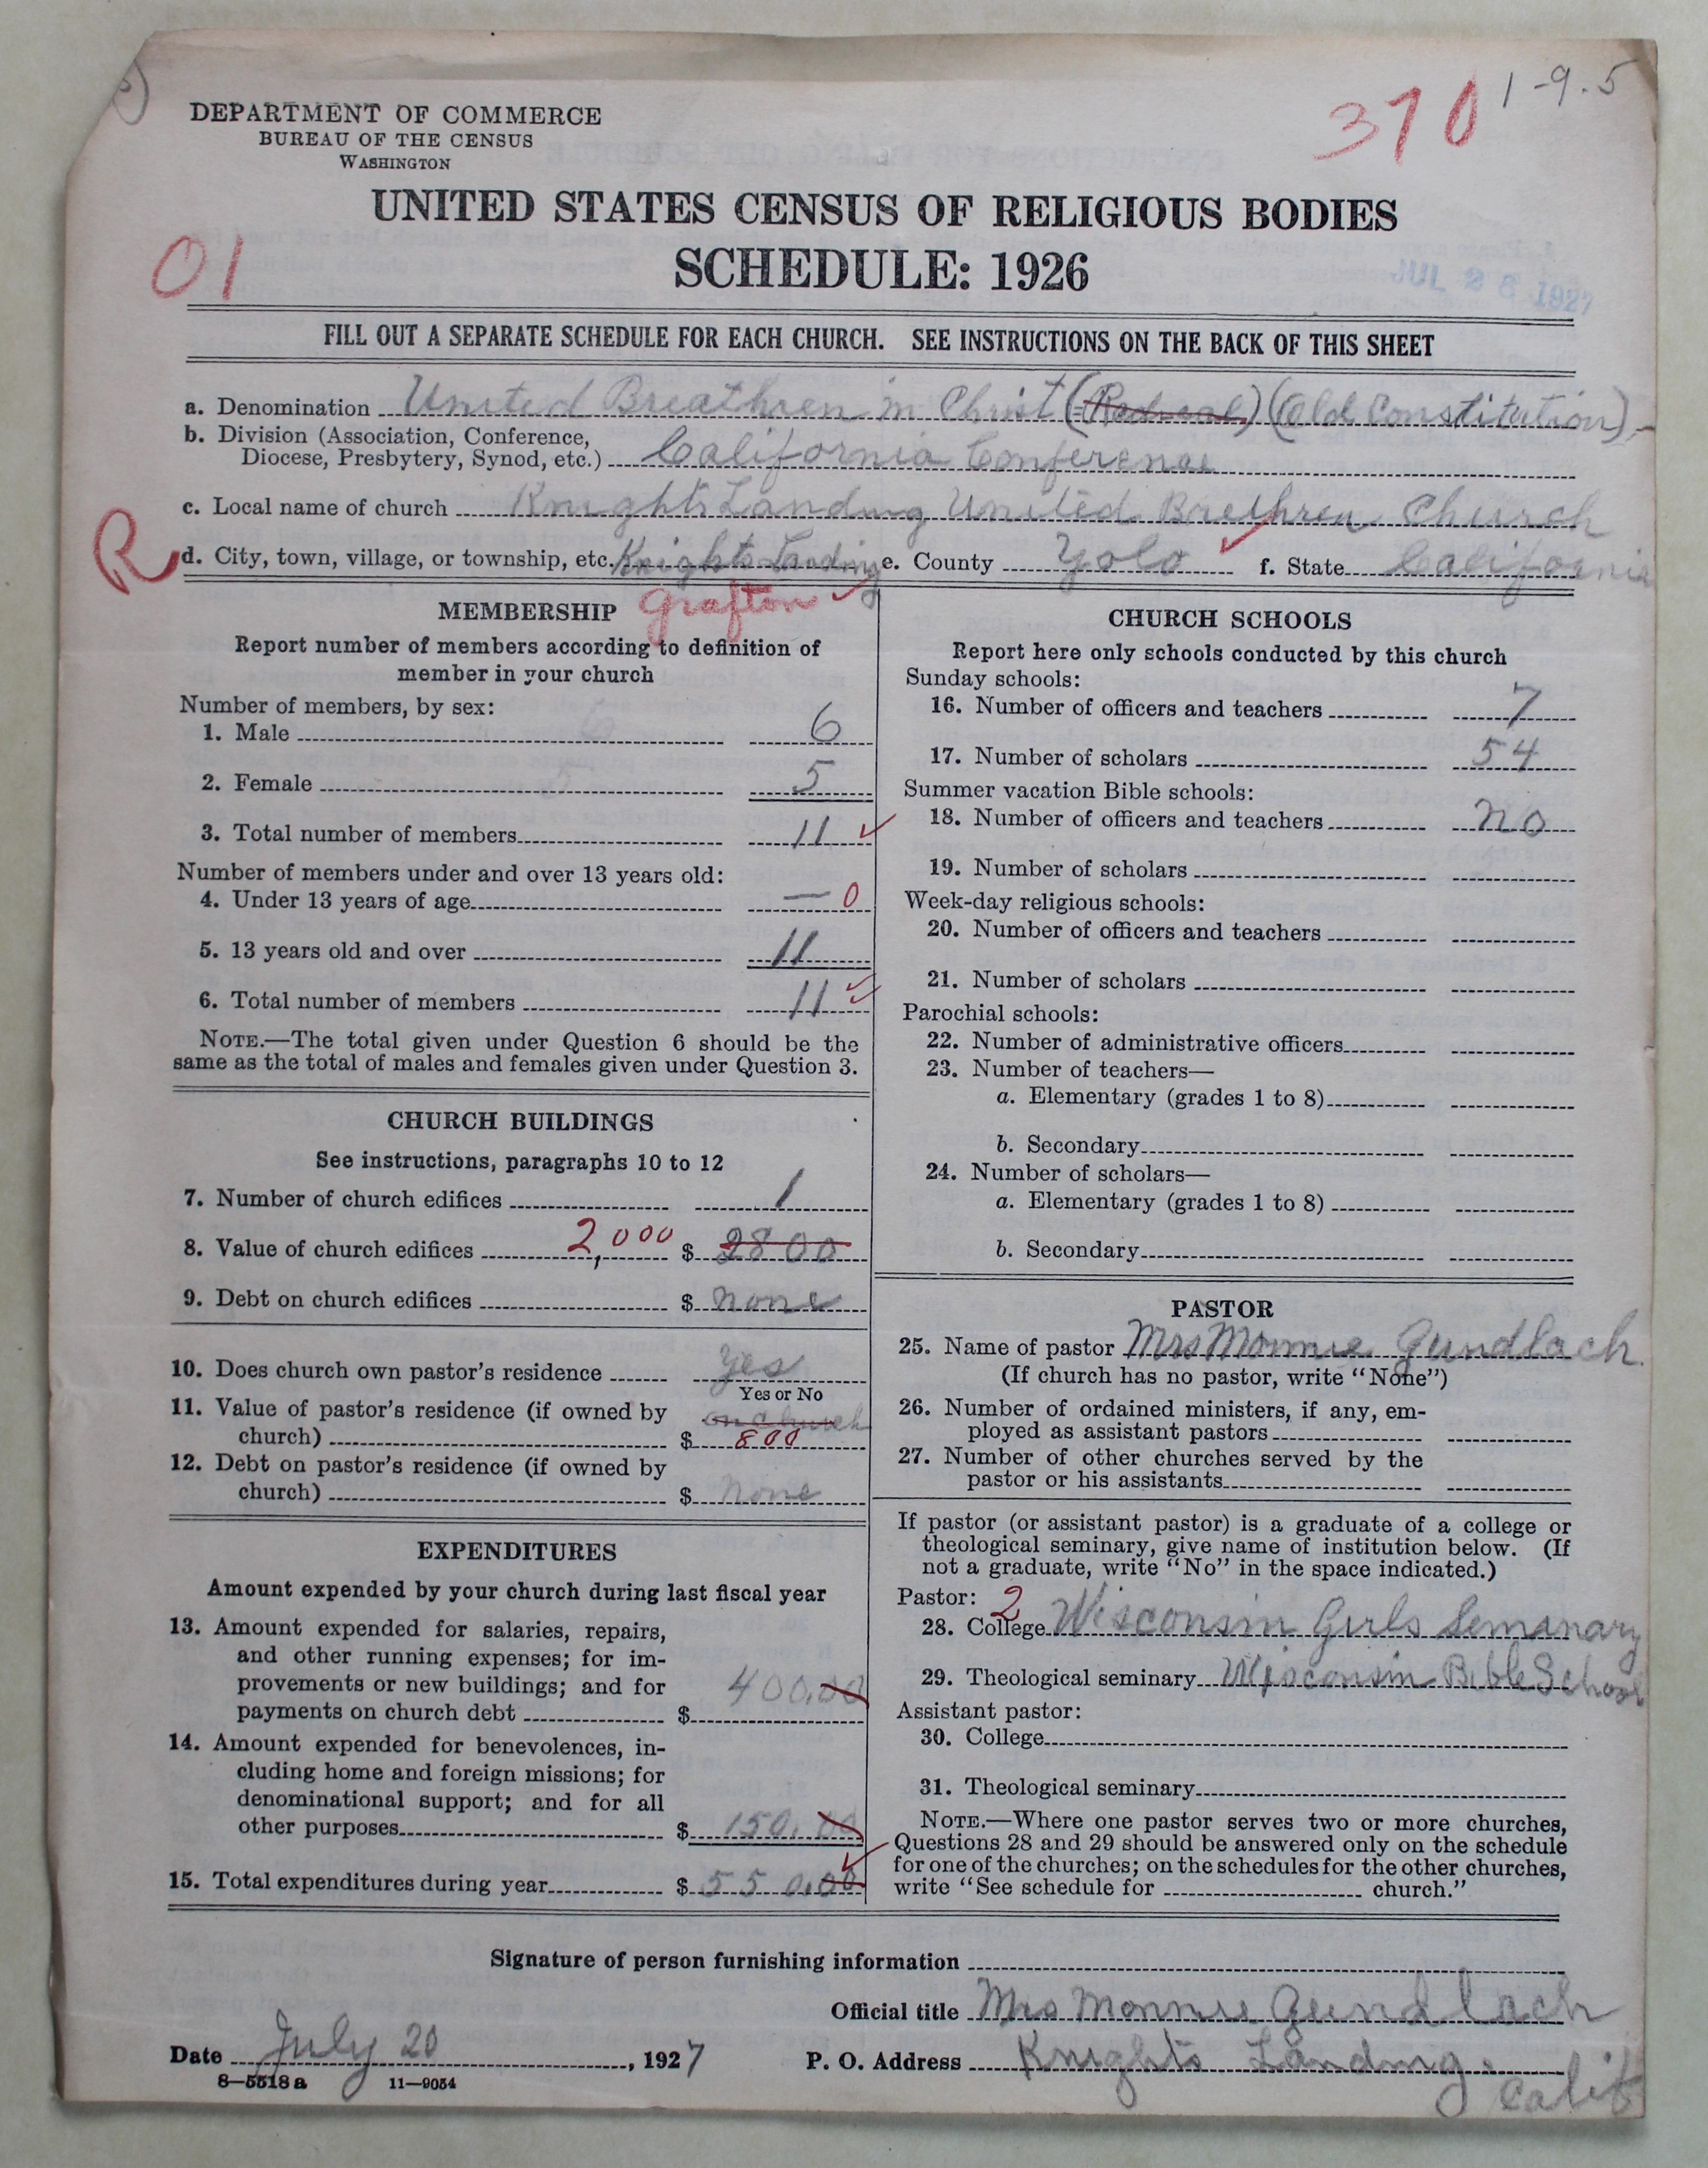 1-9.5
370
DEPARTMENT OF COMMERCE
BUREAU OF THE CENSUS
WASHINGTON
UNITED STATES CENSUS OF RELIGIOUS BODIES
SCHEDULE: 1926
01
JUL 23 1927
FILL OUT A SEPARATE SCHEDULE FOR EACH CHURCH. SEE INSTRUCTIONS ON THE BACK OF THIS SHEET
a. Denomination United Breathren in Christ (Radical) (Old Constitution)
b. Division (Association, Conference,
Diocese, Presbytery, Synod, etc.) California Conference
c. Local name of church Knights Landing United Brethren Church
R
d. City, town, village, or township, etc. Knights Landing e. County Yolo f. State California
Grafton
MEMBERSHIP
Report number of members according to definition of
member in your church
Number of members, by sex:
1. Male 6
2. Female 5
3. Total number of members 11
Number of members under and over 13 years old:
4. Under 13 years of age — 0
5. 13 years old and over 11
6. Total number of members 11
NOTE.—The total given under Question 6 should be the
same as the total of males and females given under Question 3.
CHURCH BUILDINGS
See instructions, paragraphs 10 to 12
7. Number of church edifices 1
8. Value of church edifices 2,000 $ 2800
9. Debt on church edifices $ none
10. Does church own pastor's residence Yes
Yes or No
11. Value of pastor's residence (if owned by
church) $ 800
12. Debt on pastor's residence (if owned by
church) $ None
EXPENDITURES
Amount expended by your church during last fiscal year
13. Amount expended for salaries, repairs,
and other running expenses; for im-
provements or new buildings; and for
payments on church debt $ 400.00
14. Amount expended for benevolences, in-
cluding home and foreign missions; for
denominational support; and for all
other purposes $ 150.00
15. Total expenditures during year $ 550.00
CHURCH SCHOOLS
Report here only schools conducted by this church
Sunday schools:
16. Number of officers and teachers 7
17. Number of scholars 54
Summer vacation Bible schools:
18. Number of officers and teachers no
19. Number of scholars
Week-day religious schools:
20. Number of officers and teachers
21. Number of scholars
Parochial schools:
22. Number of administrative officers
23. Number of teachers—
a. Elementary (grades 1 to 8)
b. Secondary
24. Number of scholars—
a. Elementary (grades 1 to 8)
b. Secondary
PASTOR
25. Name of pastor Mrs Monnie Gundlach
(If church has no pastor, write "None")
26. Number of ordained ministers, if any, em-
ployed as assistant pastors
27. Number of other churches served by the
pastor or his assistants
If pastor (or assistant pastor) is a graduate of a college or
theological seminary, give name of institution below. (If
not a graduate, write "No" in the space indicated.)
Pastor: 2
28. College Wisconsin Girls Semanary
29. Theological seminary Wisconsin Bible School
Assistant pastor:
30. College
31. Theological seminary
NOTE.—Where one pastor serves two or more churches,
Questions 28 and 29 should be answered only on the schedule
for one of the churches; on the schedules for the other churches,
write "See schedule for church."
Signature of person furnishing information
Official title Mrs Monnie Gundlach
Date July 20, 1927 P. O. Address Knights Landing.
Calif
8—5518 a 11—9054